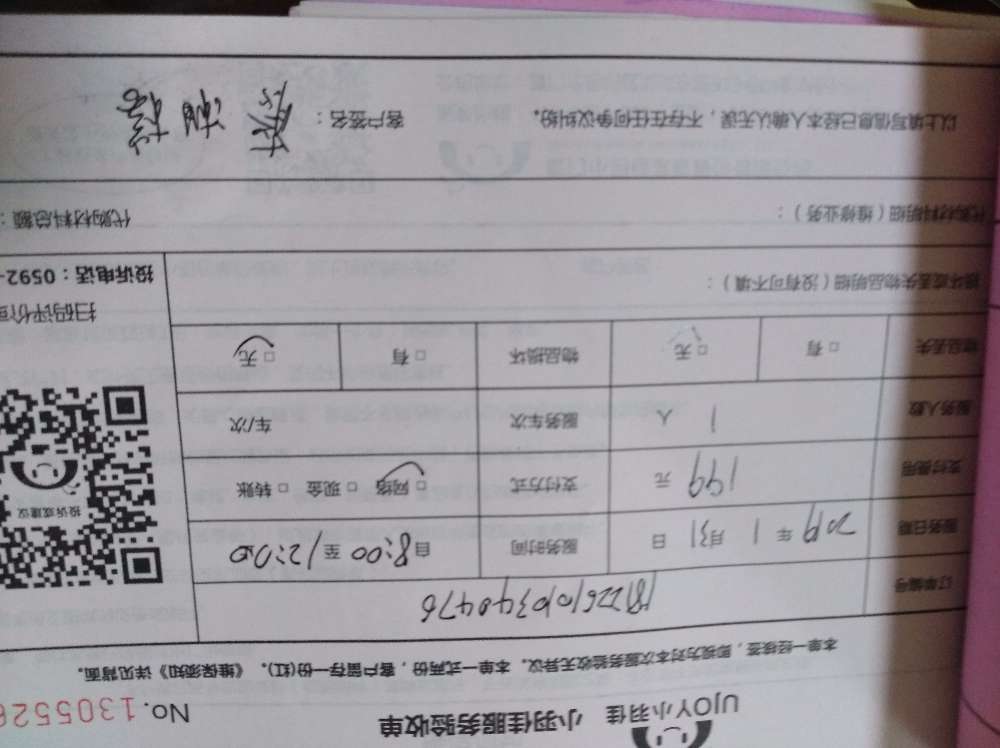 UJOY小羽佳 小羽佳服务验收单
No.1305526
本单一经接签，即视为对本次服务验收无异议。本单一式两份，客户留存一份(红)。《维保须知》详见背面。
订单编号
服务日期 2019 年 1 月 31 日 服务时间 自 8:00 至 12:00
支付费用 199 元 支付方式 □ 网络 □ 现金 □ 转账
服务人数 1 人 服务车次 车/次
物品丢失 □ 有 □ 无 物品损坏 □ 有 □ 无
投诉或建议
扫码评价
投诉电话：0592-
损坏或丢失物品明细（没有可不填）：
代购材料明细（维修业务）： 代购材料总额：
以上填写信息已经本人确认无误，不存在任何争议纠纷。 客户签名：